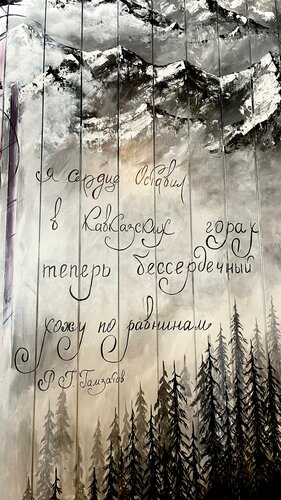 я сердце Оставил
в Кавказских горах
теперь бессердечный
хожу по равнинам
Р. Г. Гамзатов